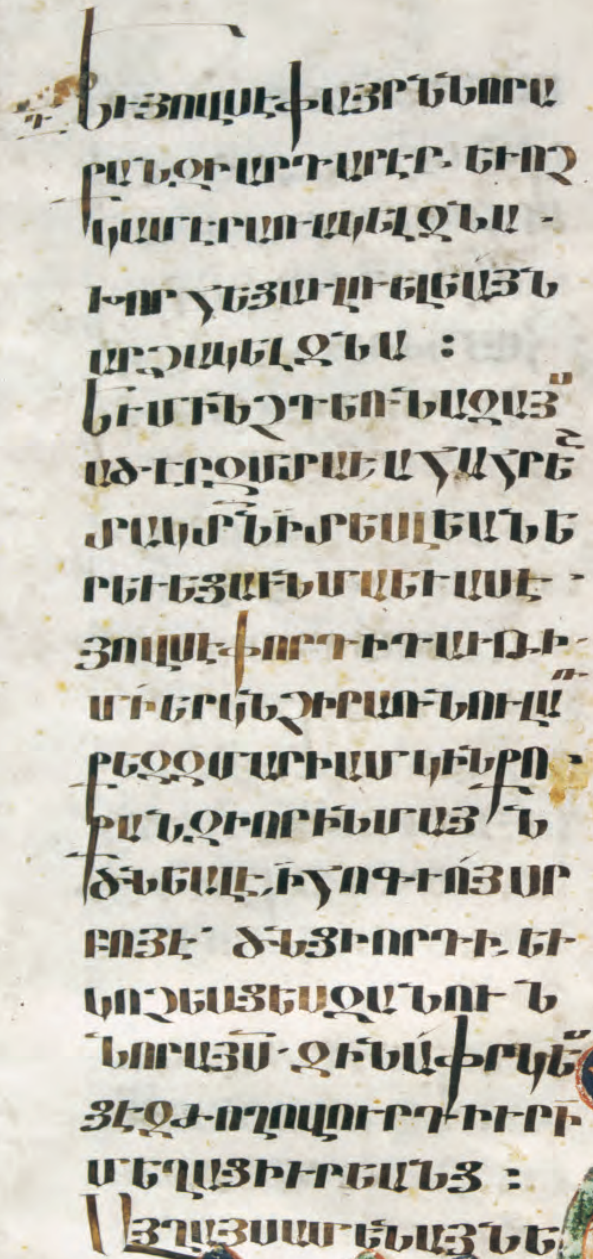 ԵՒ ՅՈՎՍԷՓ ԱՅՐՆ ՆՈՐԱ
ՔԱՆԶԻ ԱՐԴԱՐ ԷՐ. ԵՒ ՈՉ
ԿԱՄԷՐ ԱՌԱԿԵԼ ԶՆԱ.
ԽՈՐՀԵՑԱՒ ԼՌԵԼԵԱՅՆ
ԱՐՁԱԿԵԼ ԶՆԱ :
ԵՒ ՄԻՆՉԴԵՌ ՆԱ ԶԱՅՍ
ԱԾ ԷՐ ԶՄՏԱՒ ԱՀԱ ՀՐԵՇ
ՏԱԿ ՏՆ Ի ՏԵՍԼԵԱՆ Ե
ՐԵՒԵՑԱՒ ՆՄԱ ԵՒ ԱՍԷ.
ՅՈՎՍԷՓ ՈՐԴԻ ԴԱՒԹԻ.
ՄԻ ԵՐԿՆՉԻՐ ԱՌՆՈՒԼ ԱՌ
ՔԵԶ ԶՄԱՐԻԱՄ ԿԻՆ ՔՈ.
ՔԱՆԶԻ ՈՐ Ի ՆՄԱՅՆ
ԾՆԵԱԼ Է, Ի ՀՈԳՒՈՅ ՍՐ
ԲՈՅ Է՝ ԾՆՑԻ ՈՐԴԻ. ԵՒ
ԿՈՉԵՍՑԵՍ ԶԱՆՈՒՆ
ՆՈՐԱ ՅՍ. ԶԻ ՆԱ ՓՐԿԵՍ
ՑԷ ԶԺՈՂՈՎՈՒՐԴ ԻՒՐ Ի
ՄԵՂԱՑ ԻՒՐԵԱՆՑ :
ԱՅԼ ԱՅՍ ԱՄԵՆԱՅՆ Ե